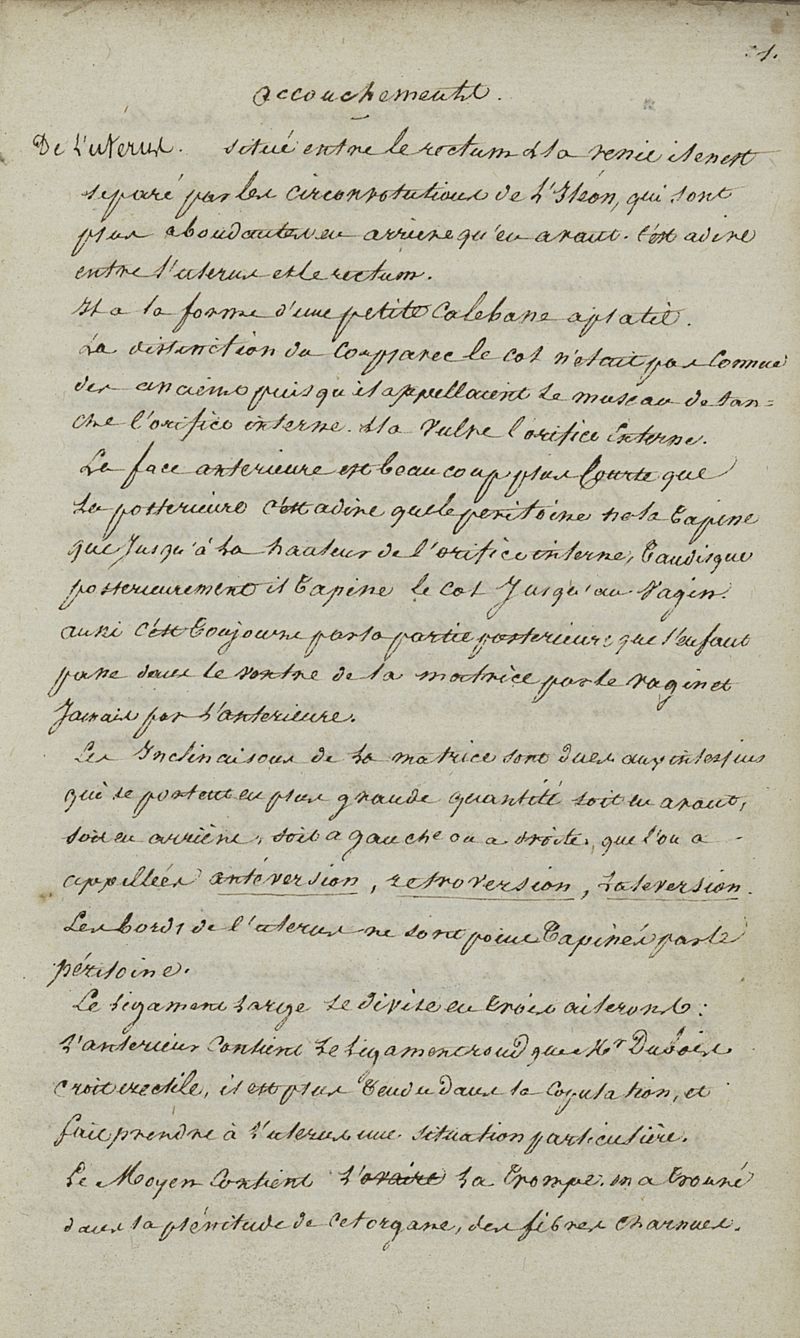 accouchements.
De L'uterus. situé entre le rectum & la vessie il en est
separé par les circonvolutions de L'Iléon, qui sont
plus abondantes en arriere qu'en avant. c'est adire
entre l'uterus et le rectum.
Il a la forme d'une petite Calebasse aplatie.
La distinction du Corps avec le col n'etait pas Connue
des anciens puisqu'ils appellaient le museau de tan=
che l'orifice interne. & la Vulve l'orifice Externe.
La face anterieure est beaucoup plus Courte que
la posterieure c'est adire que le peritoine ne la Tapisse
que Jusqu'à La hauteur de l'orifice interne, Tandisque
posterieurement il Tapisse le col Jusqu'au Vagin.
aussi c'est Toujours par la partie posterieure que l'enfant
passe dans le ventre de la matrice par le vagin et
Jamais par L'anterieure.
Les Inclinaisons de La matrice sont dues aux intestins
qui se portent en plus grande quantité soit en avant,
soit en arriere, soit a gauche ou a droite, que l'on a
appellées antéversion, retroversion, Lateversion.
Les bords de l'uterus ne sont point Tapissés par le
péritoine.
Le Ligament Large se divise en trois ailerons:
L'anterieur Contient Le Ligament rond que Mr Dubois
croit erectile, il est plus Tendu dans la Copulation, et
fait prendre à L'uterus une situation particulière.
Le Moyen Contient L'ovaire La Trompe. on a trouvé
dans la plénitude de cet organe, des fibres charnues.